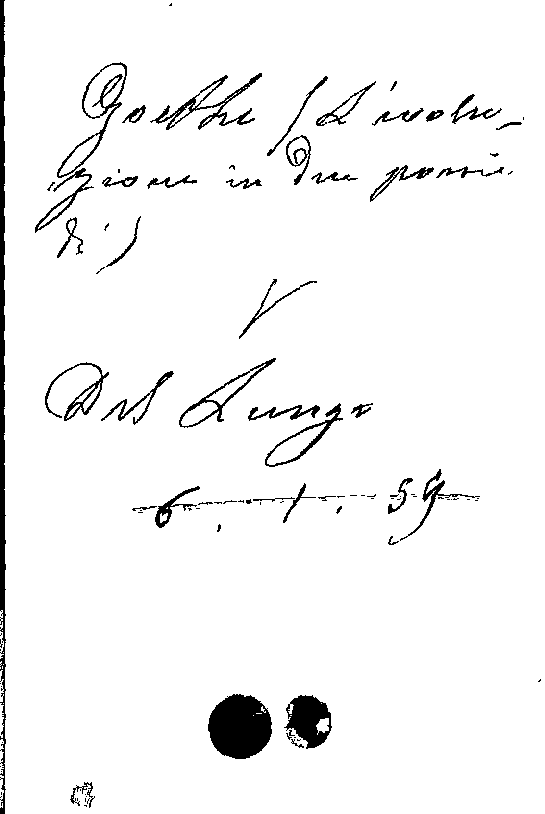 Goethe (L'evolu-
zione in due poesie
di)
V
Del Lungo
6. 1. 59